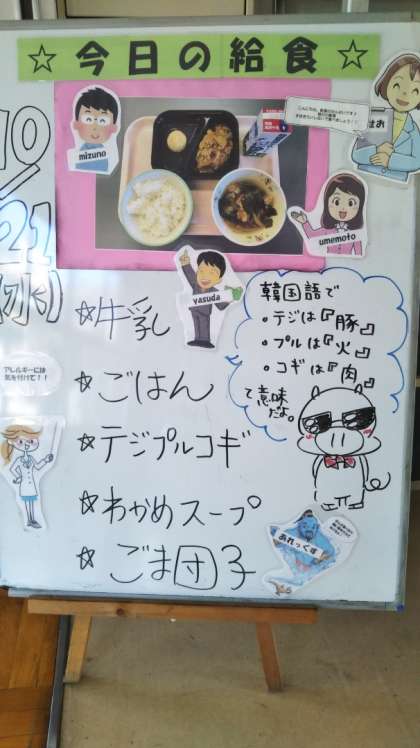 ☆今日の給食☆
10
21
(水)
mizuno
まお
umemoto
yasuda
☆牛乳
☆ごはん
☆テジプルコギ
☆わかめスープ
☆ごま団子
韓国語で
・テジは『豚』
・プルは『火』
・コギは『肉』
て意味
だよ。
アレルギーには
気を付けて！！
あれっくす